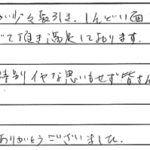 が少々長引き、しんどい面
べて頂き満足しております。
特別イヤな思いもせず皆さん
ありがとうございました。